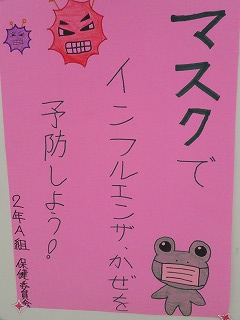 マスクで
インフルエンザ・かぜを
予防しよう!
2年A組 保健委員会